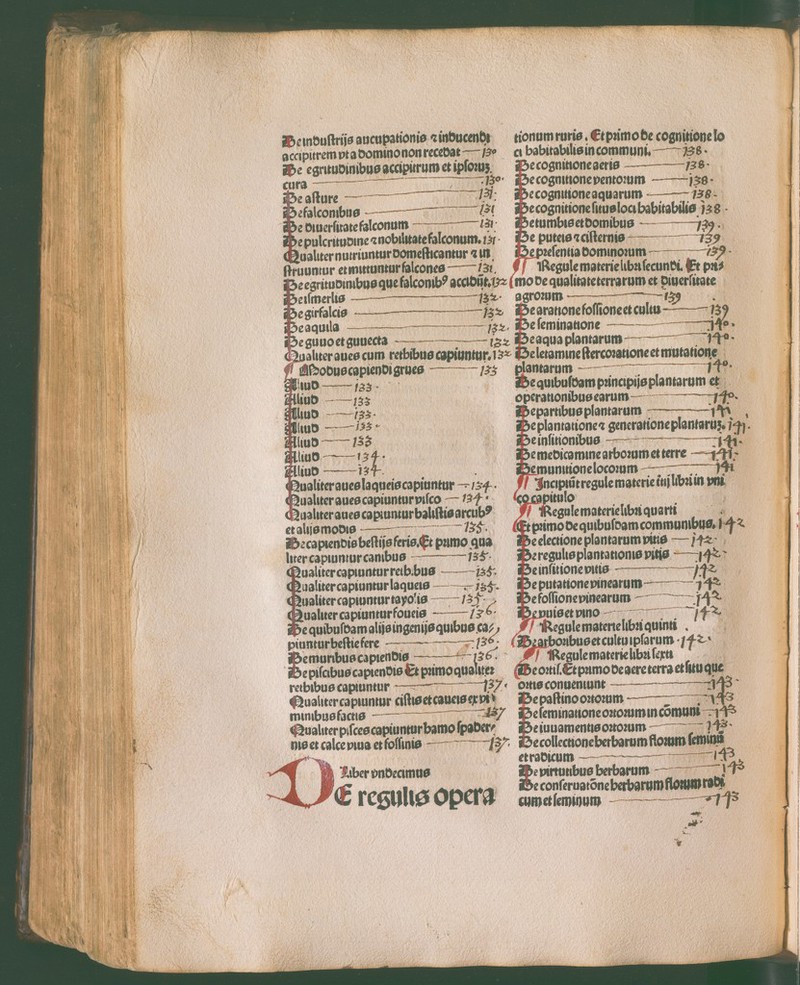 De industrijs aucupationis ⁊ inducendi
accipitrem vt a domino non recedat — 130
De egritudinibus accipitrum et ipsoruꝫ
cura — 130.
De asture — 131.
De falconibus — 131
De diuersitate falconum — 131.
De pulcritudine ⁊ nobilitate falconum. 131.
Qualiter nutriuntur domesticantur ⁊ in
struuntur et mittuntur falcones — 131.
De egritudinibus que falconibꝰ accidūt. 132
De ismerlis — 132.
De girfalcis — 132
De aquila — 132.
De guuo et guuecta — 132
Qualiter aues cum rethibus capiuntur. 132
¶ Modus capiendi grues — 133
Aliud — 133.
Aliud — 133
Aliud — 133.
Aliud — 133.
Aliud — 133
Aliud — 134.
Aliud — 134.
Qualiter aues laqueis capiuntur — 134.
Qualiter aues capiuntur visco — 134.
Qualiter aues capiuntur balistis arcubꝰ
et alijs modis — 135.
De capiendis bestijs feris. Et primo qua
liter capiuntur canibus — 135.
Qualiter capiuntur retib.bus — 135.
Qualiter capiuntur laqueis — 135.
Qualiter capiuntur tayolis — 135.
Qualiter capiuntur foueis — 136.
De quibusdam alijs ingenijs quibus ca⸗
piuntur bestie fere — 136.
De muribus capiendis — 136.
De piscibus capiendis Et primo qualiter
rethibus capiuntur — 137.
Qualiter capiuntur cistis et caueis ex vi
minibus factis — 137
Qualiter pisces capiuntur hamo spader⸗
nis et calce viua et fossinis — 137.
Liber vndecimus
DE regulis opera
tionum ruris. Et primo de cognitione lo
ci habitabilis in communi. — 138.
De cognitione aeris — 138.
De cognitione ventorum — 138.
De cognitione aquarum — 138.
De cognitione situs loci habitabilis 138.
De tumbis et domibus — 139.
De puteis ⁊ cisternis — 139
De presentia dominorum — 139.
¶ Regule materie libri secundi. Et pri⸗
mo de qualitate terrarum et diuersitate
agrorum — 139
De aratione fossione et cultu — 139
De seminatione — 140.
De aqua plantarum — 140.
De letamine stercoratione et mutatione
plantarum — 140.
De quibusdam principijs plantarum et
operationibus earum — 140.
De partibus plantarum — 141
De plantatione ⁊ generatione plantaruꝫ. 141.
De insitionibus — 141.
De medicamine arborum et terre — 141.
De munitione locorum — 141
¶ Incipiūt regule materie iiij libri in vni
co capitulo
¶ Regule materie libri quarti
Et primo de quibusdam communibus. 142
De electione plantarum vitis — 142.
De regulis plantationis vitis — 142.
De insitione vitis — 142
De putatione vinearum — 142
De fossione vinearum — 142
De vuis et vino — 142
¶ Regule materie libri quinti.
De arboribus et cultu ipsarum. 142.
¶ Regule materie libri sexti
De ortis. Et primo de aere terra et situ que
ortis conueniunt — 143.
De pastino ortorum — 143
De seminatione ortorum in cōmuni — 143
De iuuamentis ortorum — 143.
De collectione herbarum florum seminū
et radicum — 143
De virtutibus herbarum — 143
De conseruatōne herbarum florum radi
cum et seminum — 143